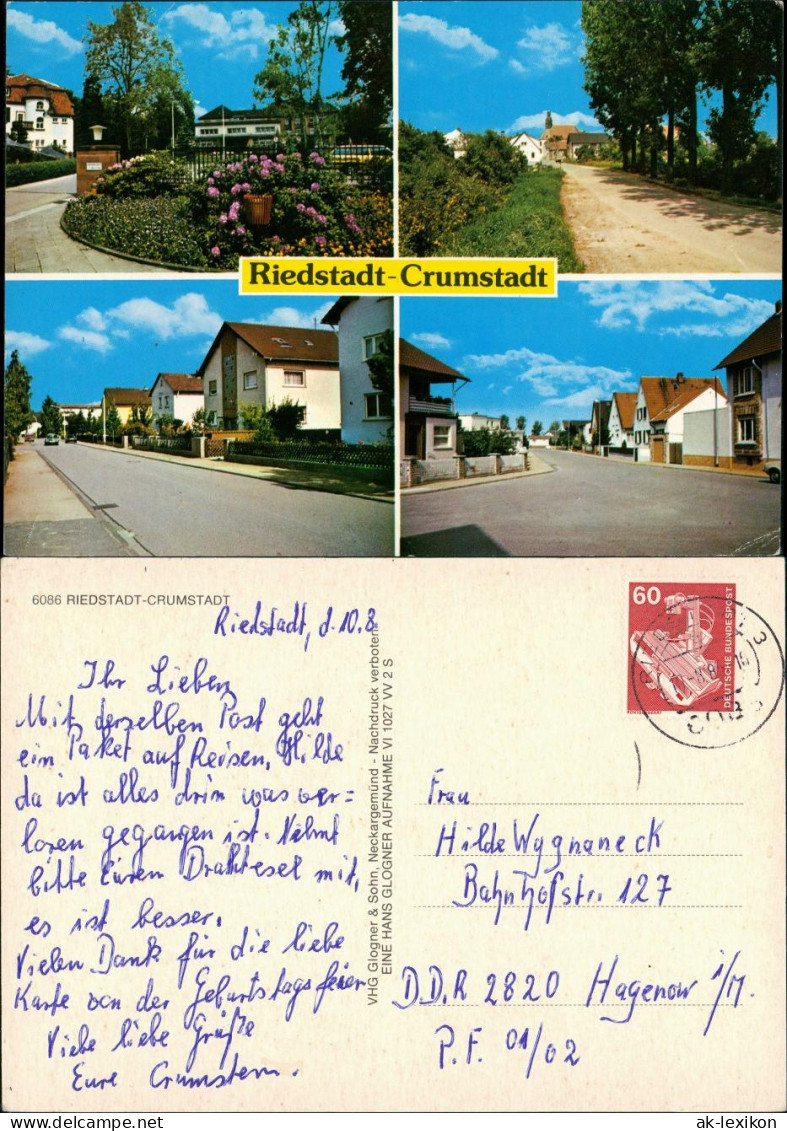 Riedstadt-Crumstadt
6086 RIEDSTADT-CRUMSTADT
Riedstadt, d. 10.8.
Ihr Lieben
Mit derselben Post geht
ein Paket auf Reisen, Hilde
da ist alles drin was ver=
loren gegangen ist. Nehmt
bitte Euren Drahtesel mit,
es ist besser.
Vielen Dank für die liebe
Karte von der Geburtstagsfeier
Viele liebe Grüße
Eure Crumstern.
VHG Glogner & Sohn, Neckargemünd - Nachdruck verboten
EINE HANS GLOGNER AUFNAHME VI 1027 VV 2 S
60
DEUTSCHE BUNDESPOST
Frau
Hilde Wygnaneck
Bahnhofstr. 127
DDR 2820 Hagenow i/M.
P.F. 01/02
ak-lexikon